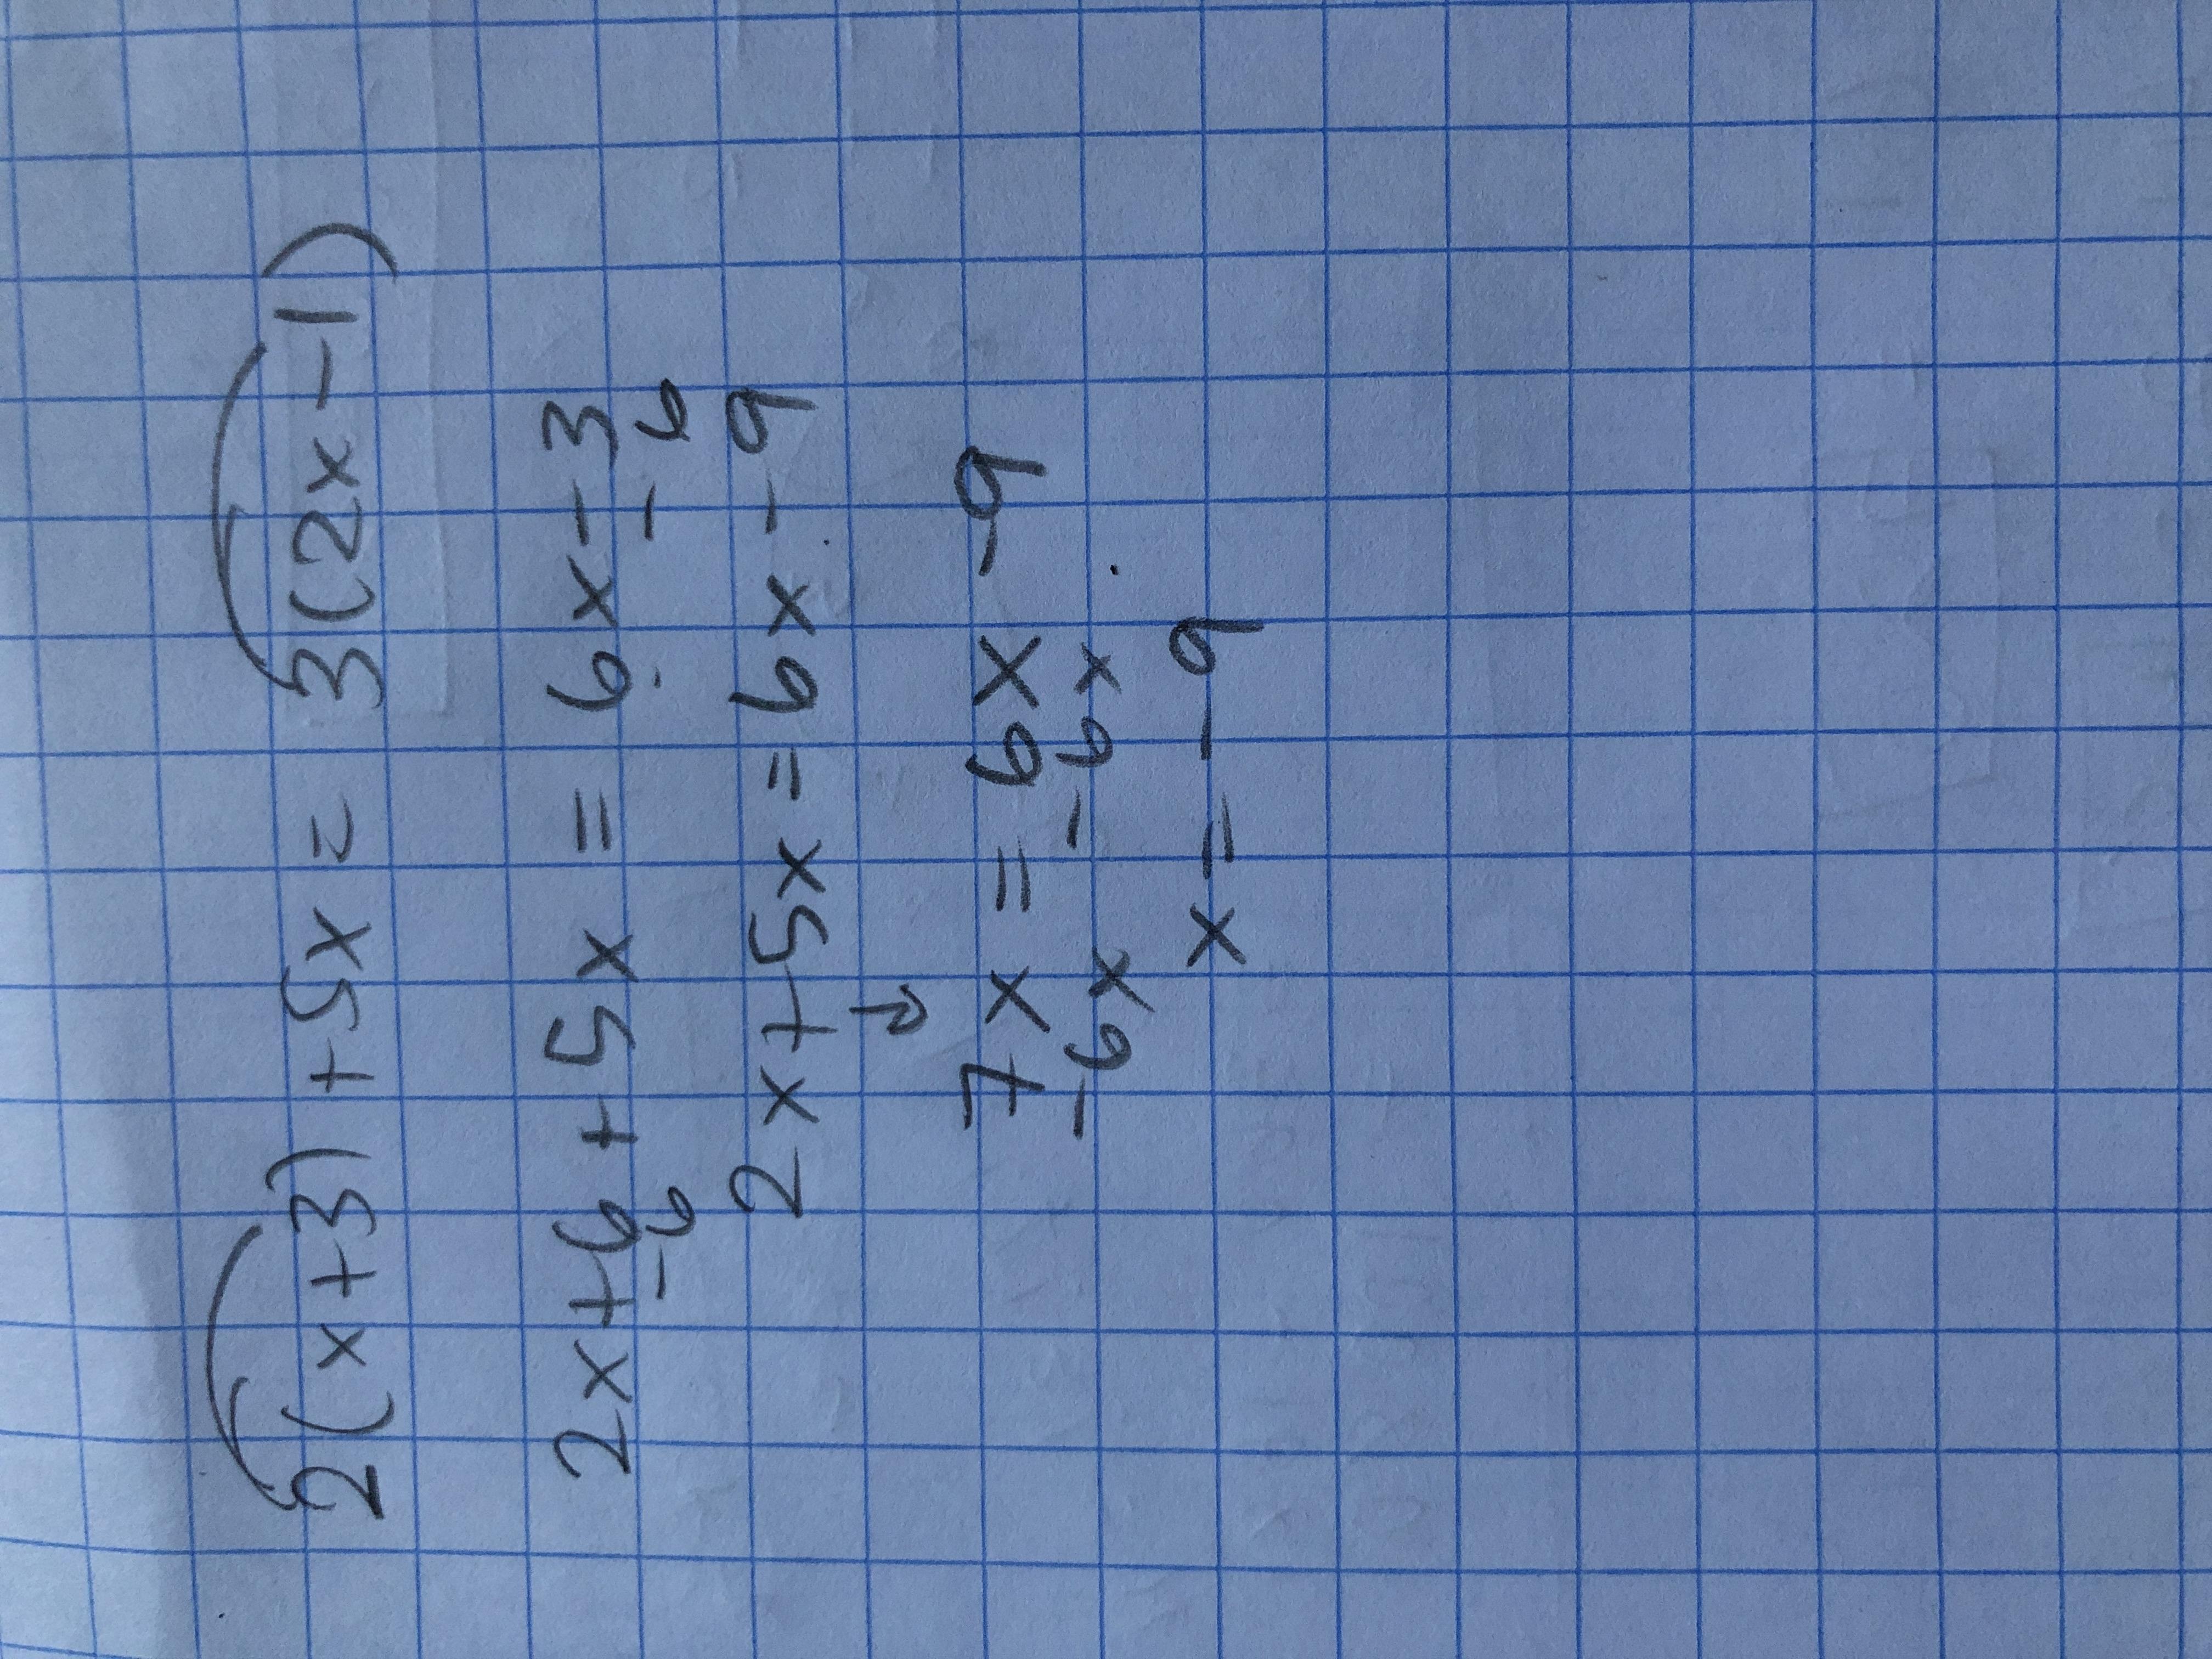 2(x+3)+5x = 3(2x-1)
2x+6+5x = 6x-3
-6 -6
2x+5x = 6x-9
7x = 6x-9
-6x -6x
x = -9